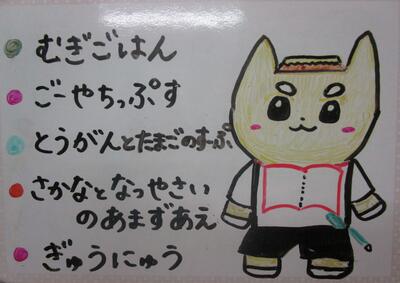 むぎごはん
ごーやちっぷす
とうがんとたまごのすーぷ
さかなとなつやさい
のあまずあえ
ぎゅうにゅう